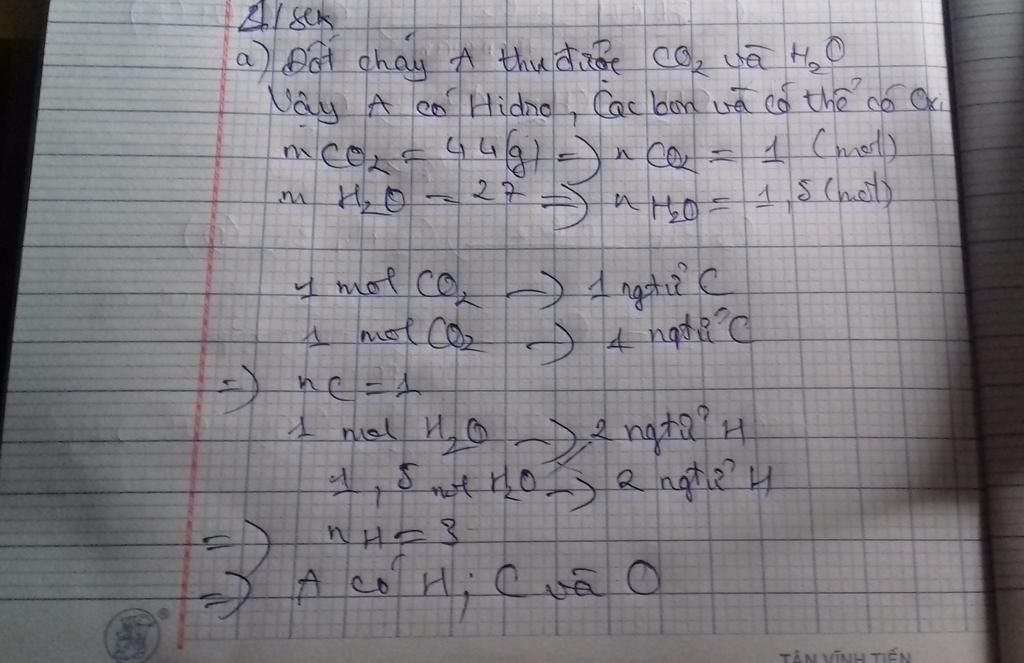 2/ SGK
a) Đốt cháy A thu được CO2 và H2O
Vậy A có Hidno, Cacbon và có thể có Oxi
mCO2 = 44(g) => nCO2 = 1 (mol)
m H2O = 27 => nH2O = 1,5 (mol)
1 mol CO2 -> 1 ngtử C
1 mol CO2 -> 1 ngtử C
=> nC = 1
1 mol H2O -> 2 ngtử H
1,5 mol H2O -> 2 ngtử H
=> nH = 3
=> A có H; C và O
TÂN VĨNH TIẾN